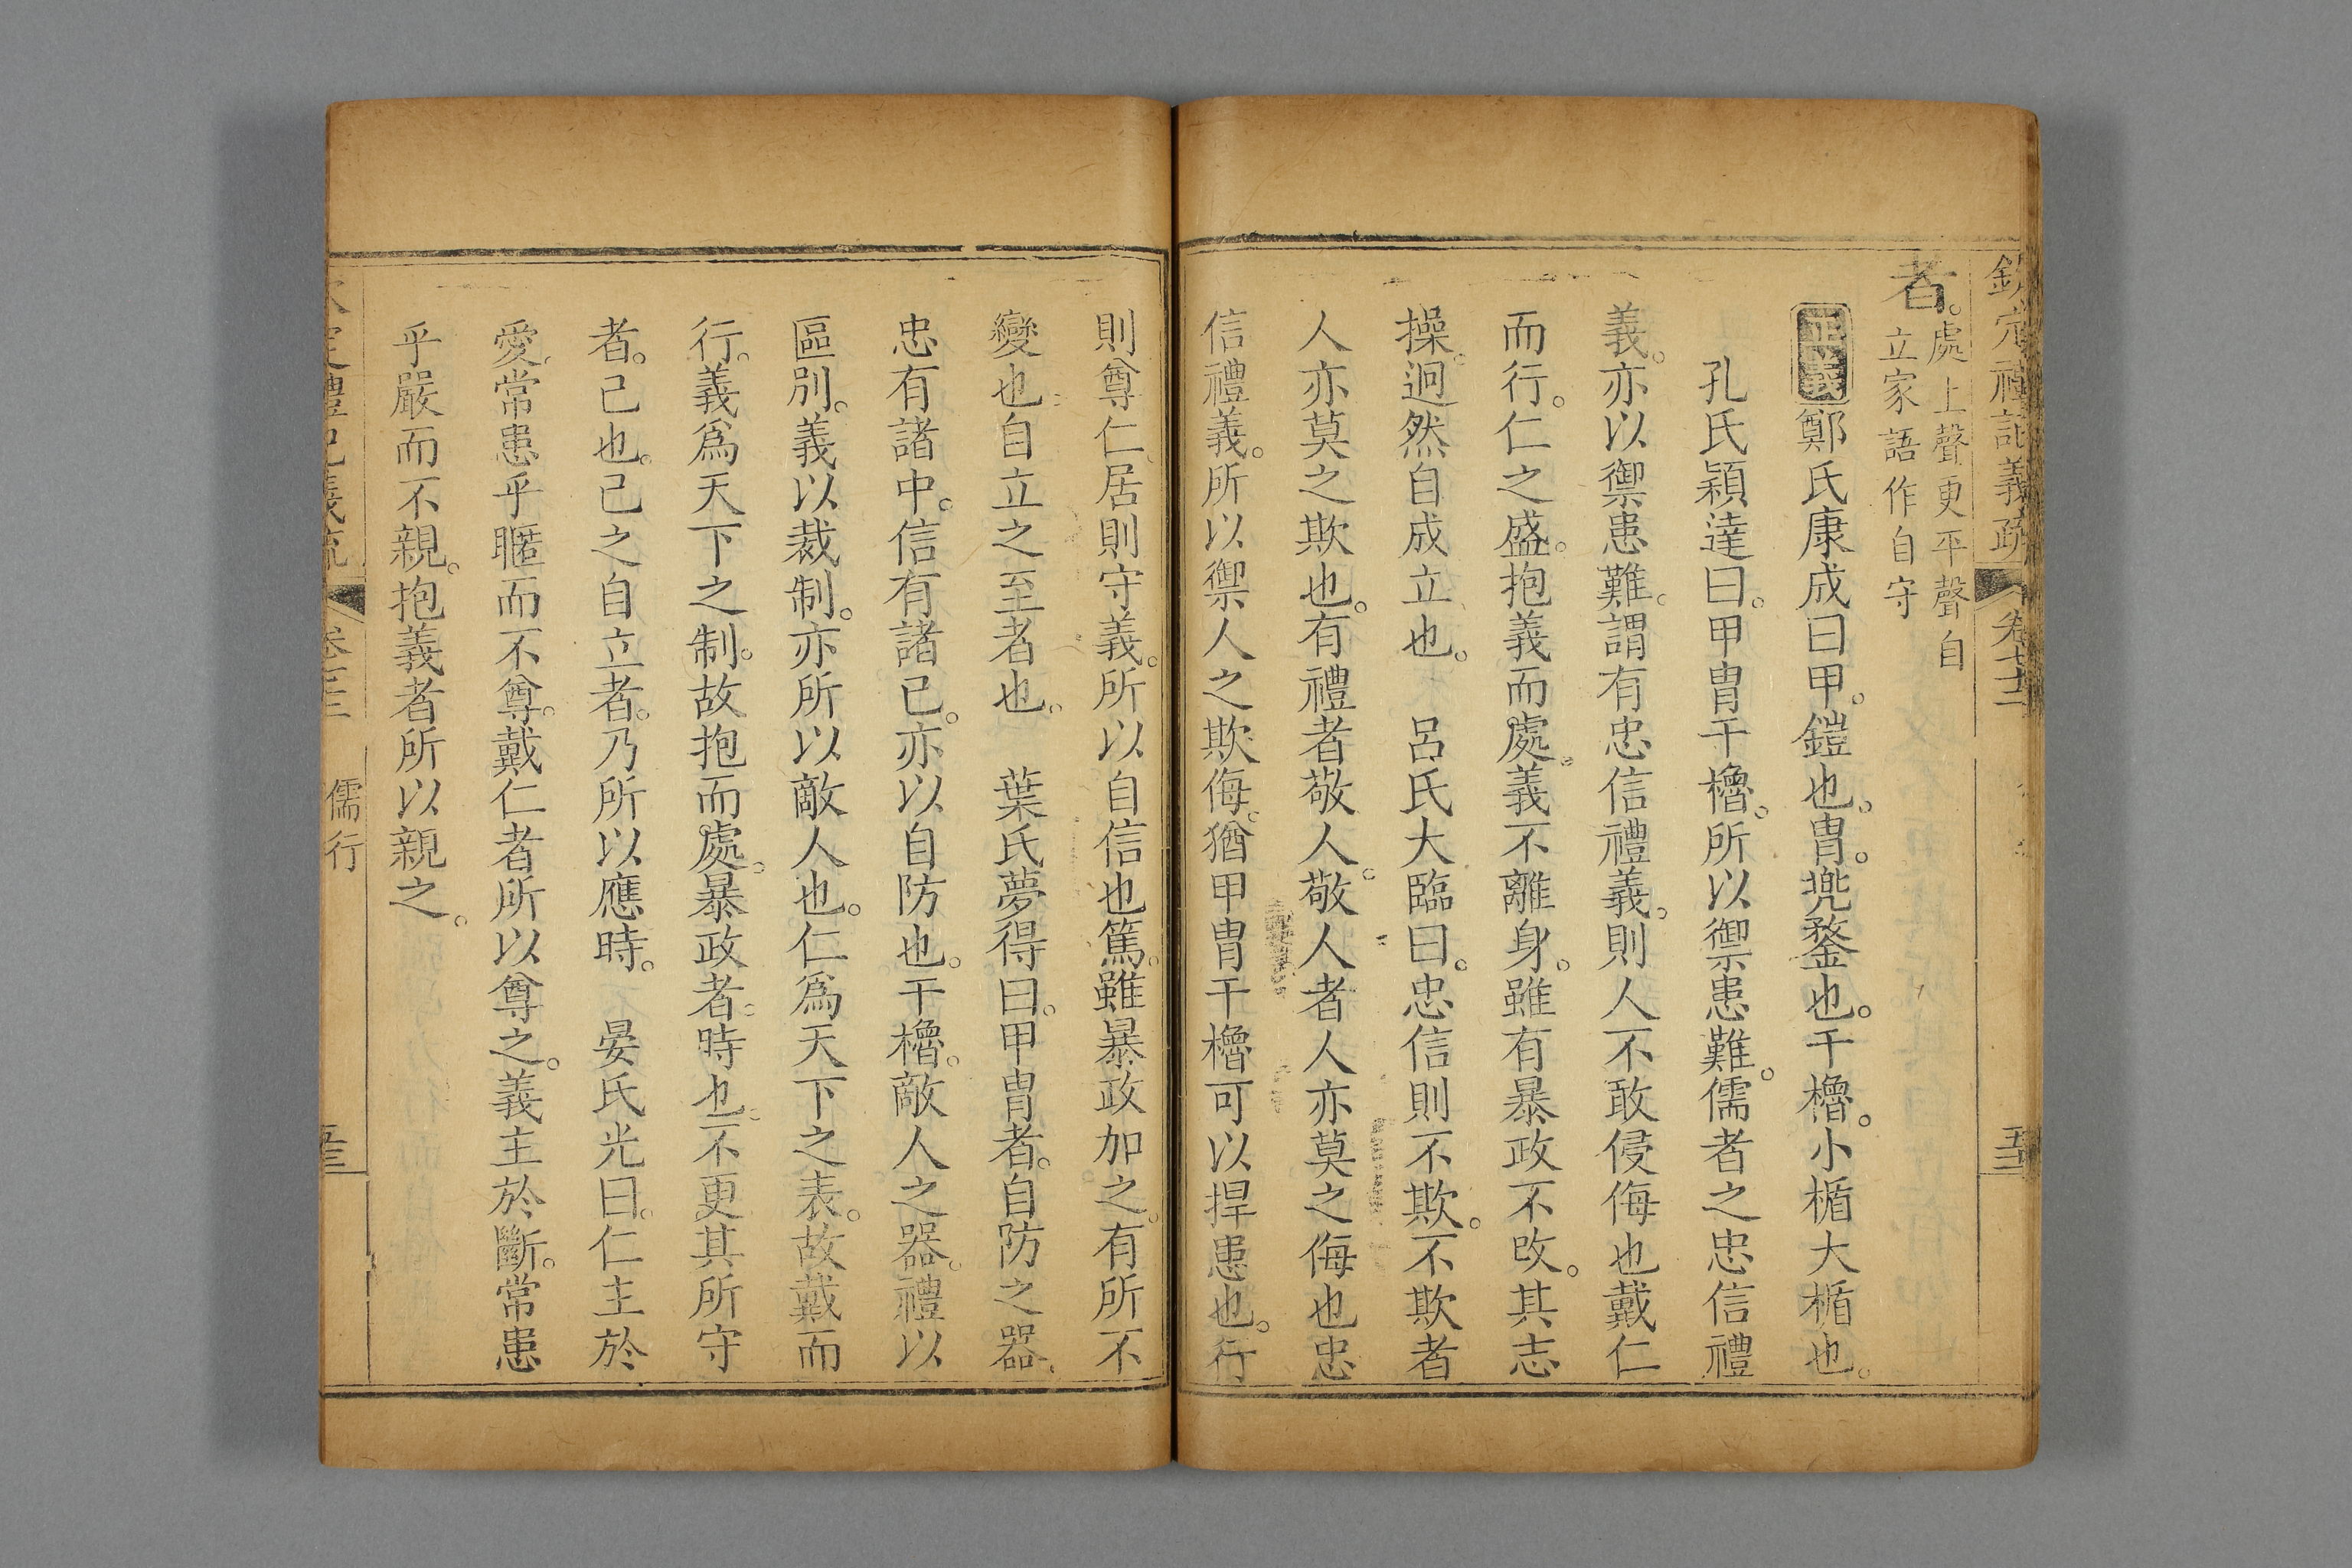 欽定禮記義疏 卷七十三 五十三
者。處上聲更平聲自立家語作自守
正義鄭氏康成曰甲。鎧也。冑。兠鍪也。干櫓。小楯大楯也。
孔氏穎達曰。甲冑干櫓。所以禦患難。儒者之忠信禮
義。亦以禦患難。謂有忠信禮義。則人不敢侵侮也戴仁
而行。仁之盛。抱義而處。義不離身。雖有暴政不改。其志
操。迥然自成立也。 呂氏大臨曰。忠信則不欺。不欺者
人亦莫之欺也。有禮者敬人。敬人者人亦莫之侮也忠
信禮義。所以禦人之欺侮。猶甲冑干櫓可以捍患也。行
則尊仁、居則守義。所以自信也篤。雖暴政加之。有所不
變也自立之至者也。 葉氏夢得曰。甲冑者。自防之器、
忠有諸中。信有諸己。亦以自防也。干櫓。敵人之器。禮以
區別。義以裁制。亦所以敵人也。仁爲天下之表。故戴而
行。義爲天下之制。故抱而處。暴政者。時也。不更其所守
者。己也。己之自立者。乃所以應時。 晏氏光曰。仁主於
愛。常患乎暱而不尊。戴仁者所以尊之。義主於斷。常患
乎嚴而不親。抱義者所以親之。
儒行